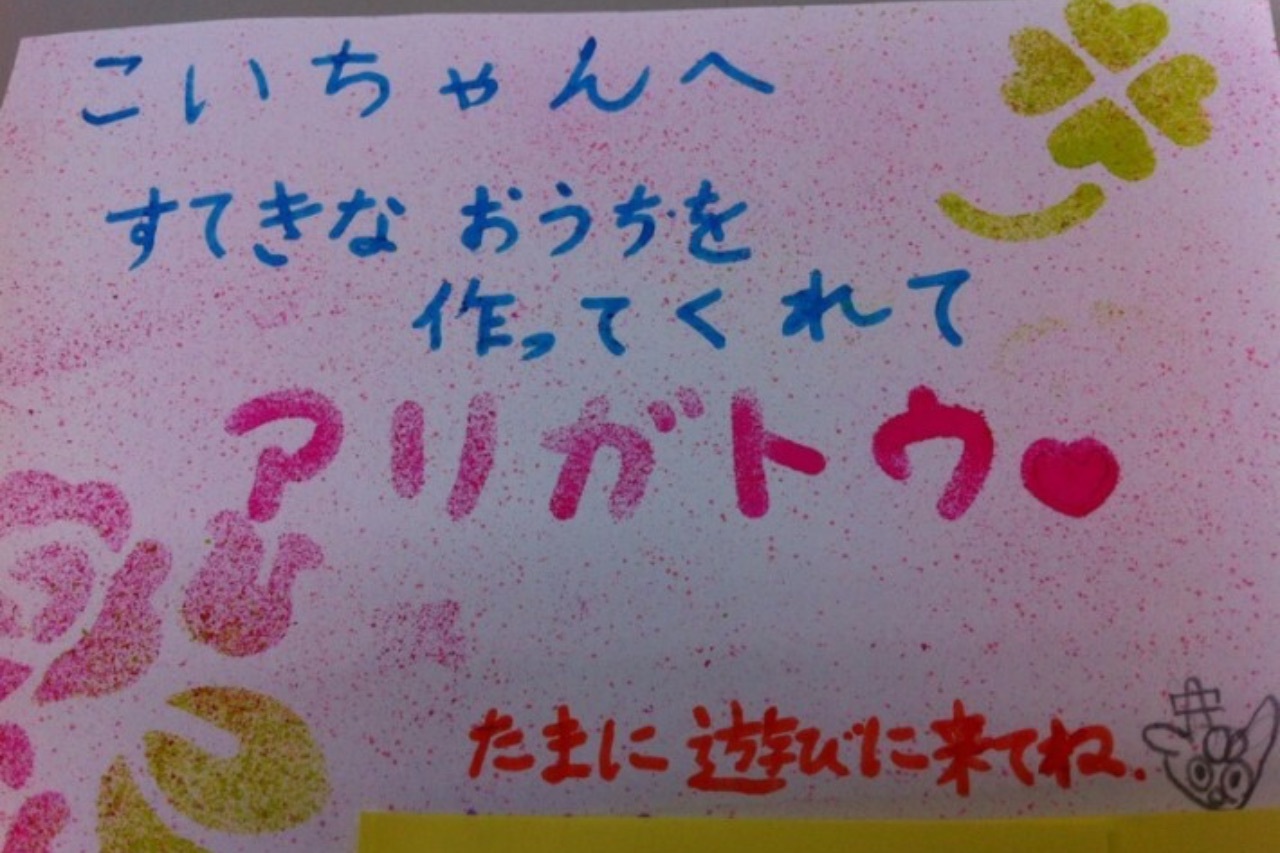 こいちゃんへ
すてきな おうちを
作ってくれて
アリガトウ♥
たまに遊びに来てね.